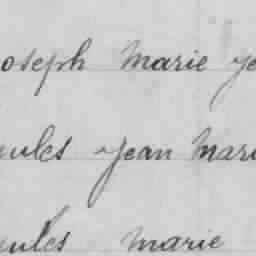 oseph Marie Je
Jules Jean Mari
Jules Marie